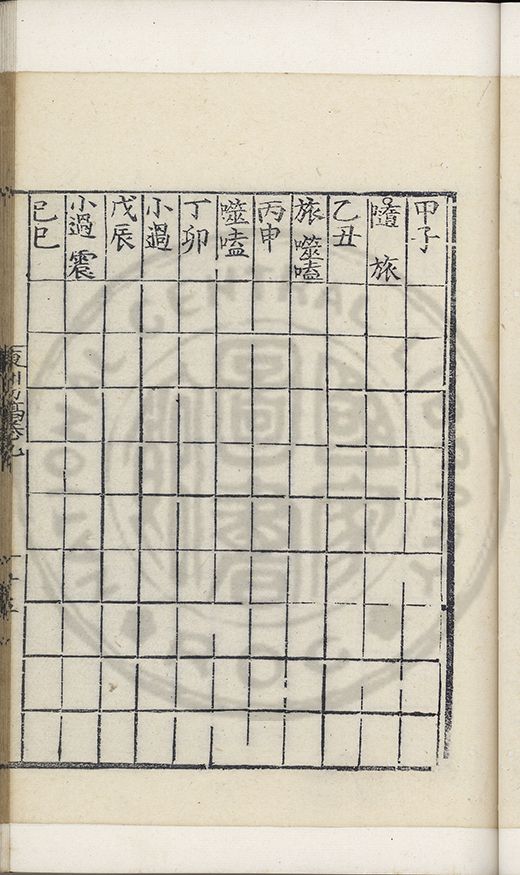 甲子
隨 旅
乙丑
旅 噬嗑
丙申
噬嗑
丁卯
小過
戊辰
小過 震
己巳
NATIONAL CENTRAL LIBRARY